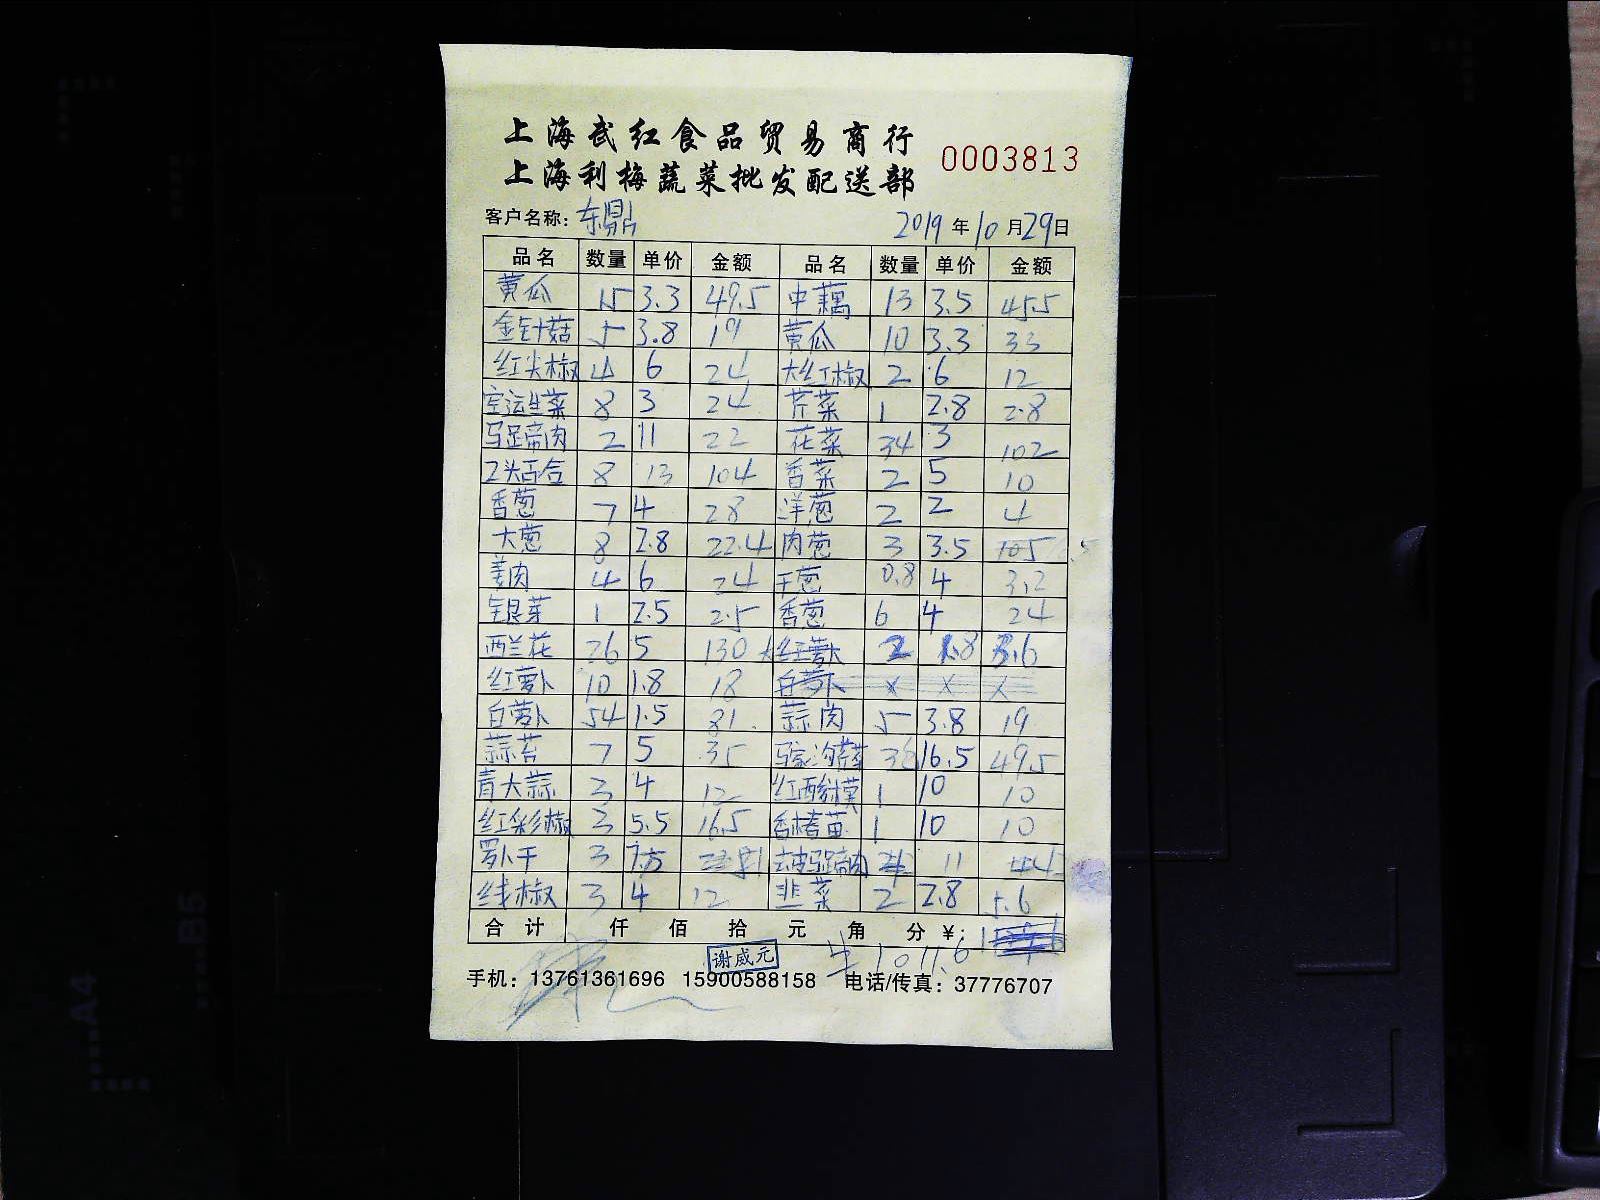 上海武红食品贸易商行
上海利梅蔬菜批发配送部
0003813
客户名称: 东鼎 2019 年 10 月 29 日
品名 数量 单价 金额 品名 数量 单价 金额
黄瓜 15 3.3 49.5 中藕 13 3.5 45.5
金针菇 5 3.8 19 黄瓜 10 3.3 33
红尖椒 4 6 24 大红椒 2 6 12
空运生菜 8 3 24 芹菜 1 2.8 2.8
马蹄肉 2 11 22 花菜 34 3 102
2头百合 8 13 104 香菜 2 5 10
香葱 7 4 28 洋葱 2 2 4
大葱 8 2.8 22.4 肉葱 3 3.5 10.5
姜肉 4 6 24 干葱 0.8 4 3.2
银芽 1 2.5 2.5 香葱 6 4 24
西兰花 26 5 130 红萝卜 2 1.8 3.6
红萝卜 10 1.8 18 白萝卜 × × ×
白萝卜 54 1.5 81 蒜肉 5 3.8 19
蒜苔 7 5 35 马家沟芹菜 3 16.5 49.5
青大蒜 3 4 12 红酸模 1 10 10
红彩椒 3 5.5 16.5 香椿苗 1 10 10
罗卜干 3 7.5 去皮马蹄肉 11
线椒 3 4 12 韭菜 2 2.8 5.6
合计 仟 佰 拾 元 角 分 ¥:
谢威元 1011.6
手机: 13761361696 15900588158 电话/传真: 37776707